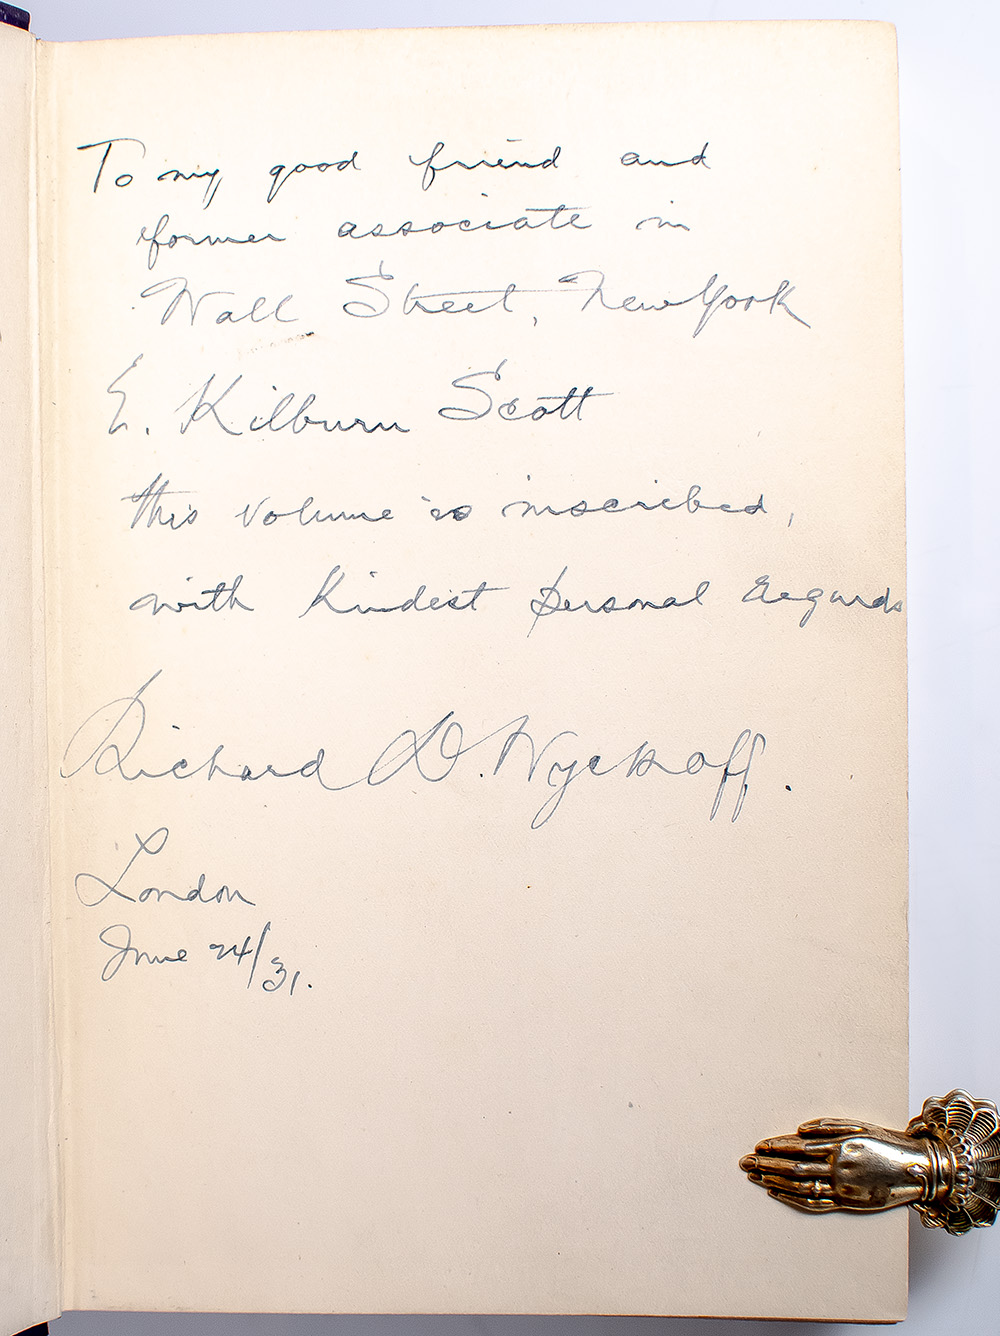 To my good friend and
former associate in
Wall Street, New York
E. Kilburn Scott
this volume is inscribed,
with kindest personal regards
Richard D. Wyckoff.
London
June 24/31.